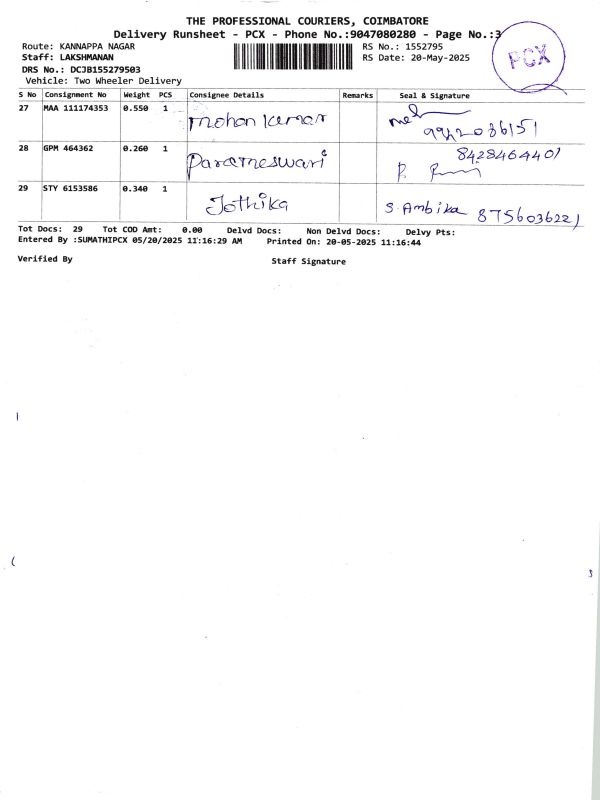 THE PROFESSIONAL COURIERS, COIMBATORE
Delivery Runsheet - PCX - Phone No.:9047080280 - Page No.:3
Route: KANNAPPA NAGAR
RS No.: 1552795
Staff: LAKSHMANAN
RS Date: 20-May-2025
DRS No.: DCJB155279503
Vehicle: Two Wheeler Delivery
PCX
S No Consignment No Weight PCS Consignee Details Remarks Seal & Signature
27 MAA 111174353 0.550 1 mohan kumar
28 GPM 464362 0.260 1 Parameswari 8428464401
29 STY 6153586 0.340 1 Jothika S. Ambika 8756036221
Tot Docs: 29 Tot COD Amt: 0.00 Delvd Docs: Non Delvd Docs: Delvy Pts:
Entered By :SUMATHIPCX 05/20/2025 11:16:29 AM Printed On: 20-05-2025 11:16:44
Verified By Staff Signature